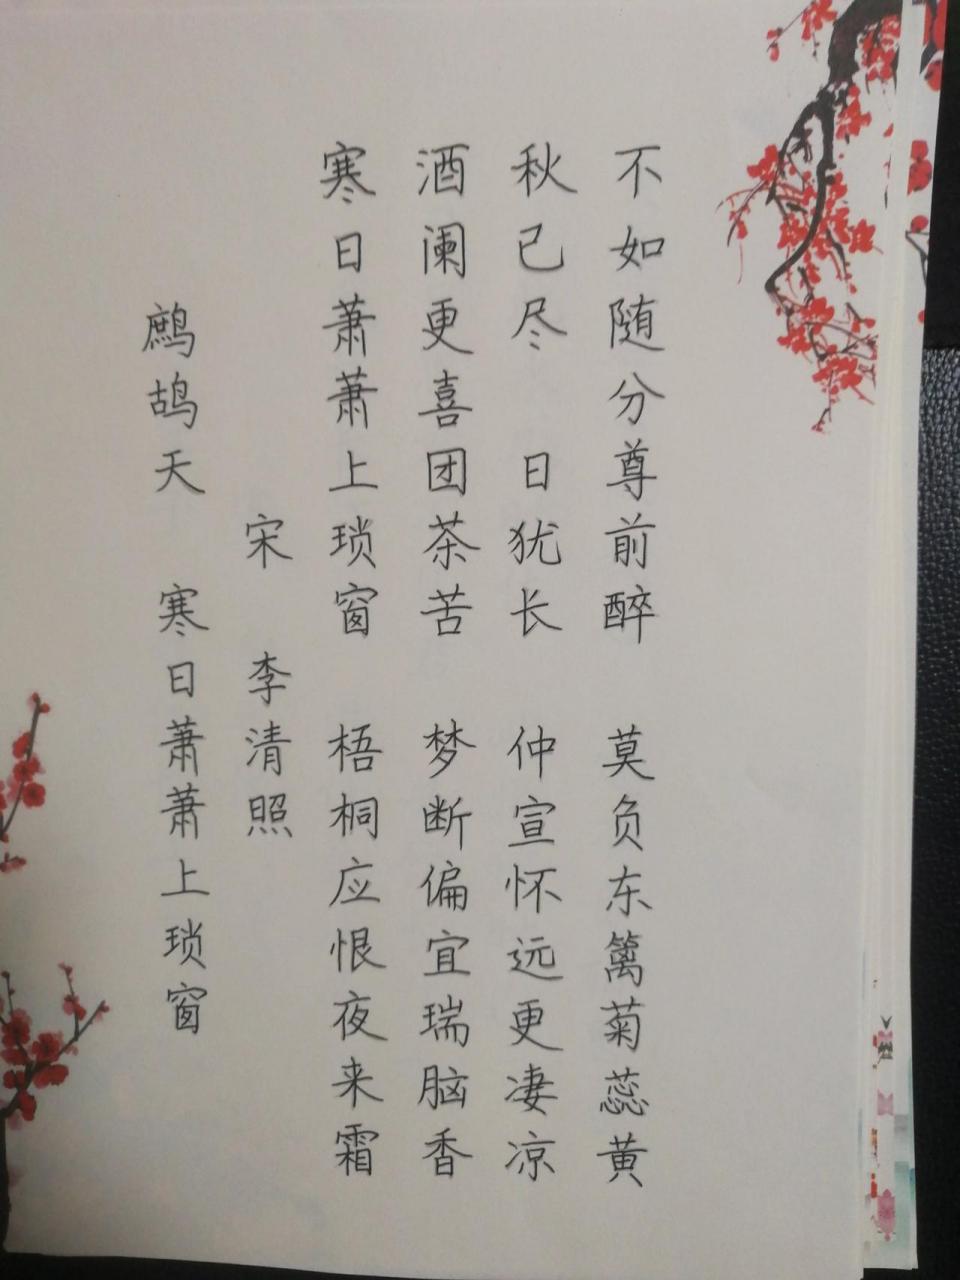 鹧鸪天 寒日萧萧上琐窗
宋 李清照
寒日萧萧上琐窗 梧桐应恨夜来霜
酒阑更喜团茶苦 梦断偏宜瑞脑香
秋已尽 日犹长 仲宣怀远更凄凉
不如随分尊前醉 莫负东篱菊蕊黄